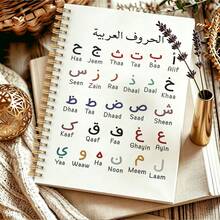 الحروف العربية
ا ب ت ث ج ح
Haa Jeem Thaa Taa Baa Alif
خ د ذ ر ز س
Seen Zaa Raa Dhaal Daal Khaa
ش ص ض ط ظ
Dhaa Dhaad Saad Sheen
ع غ ف ق ك
Kaaf Qaaf Faa Ghayn
ل م ن ه و ي
Yaa Waaw Ha Noon Meem Laam